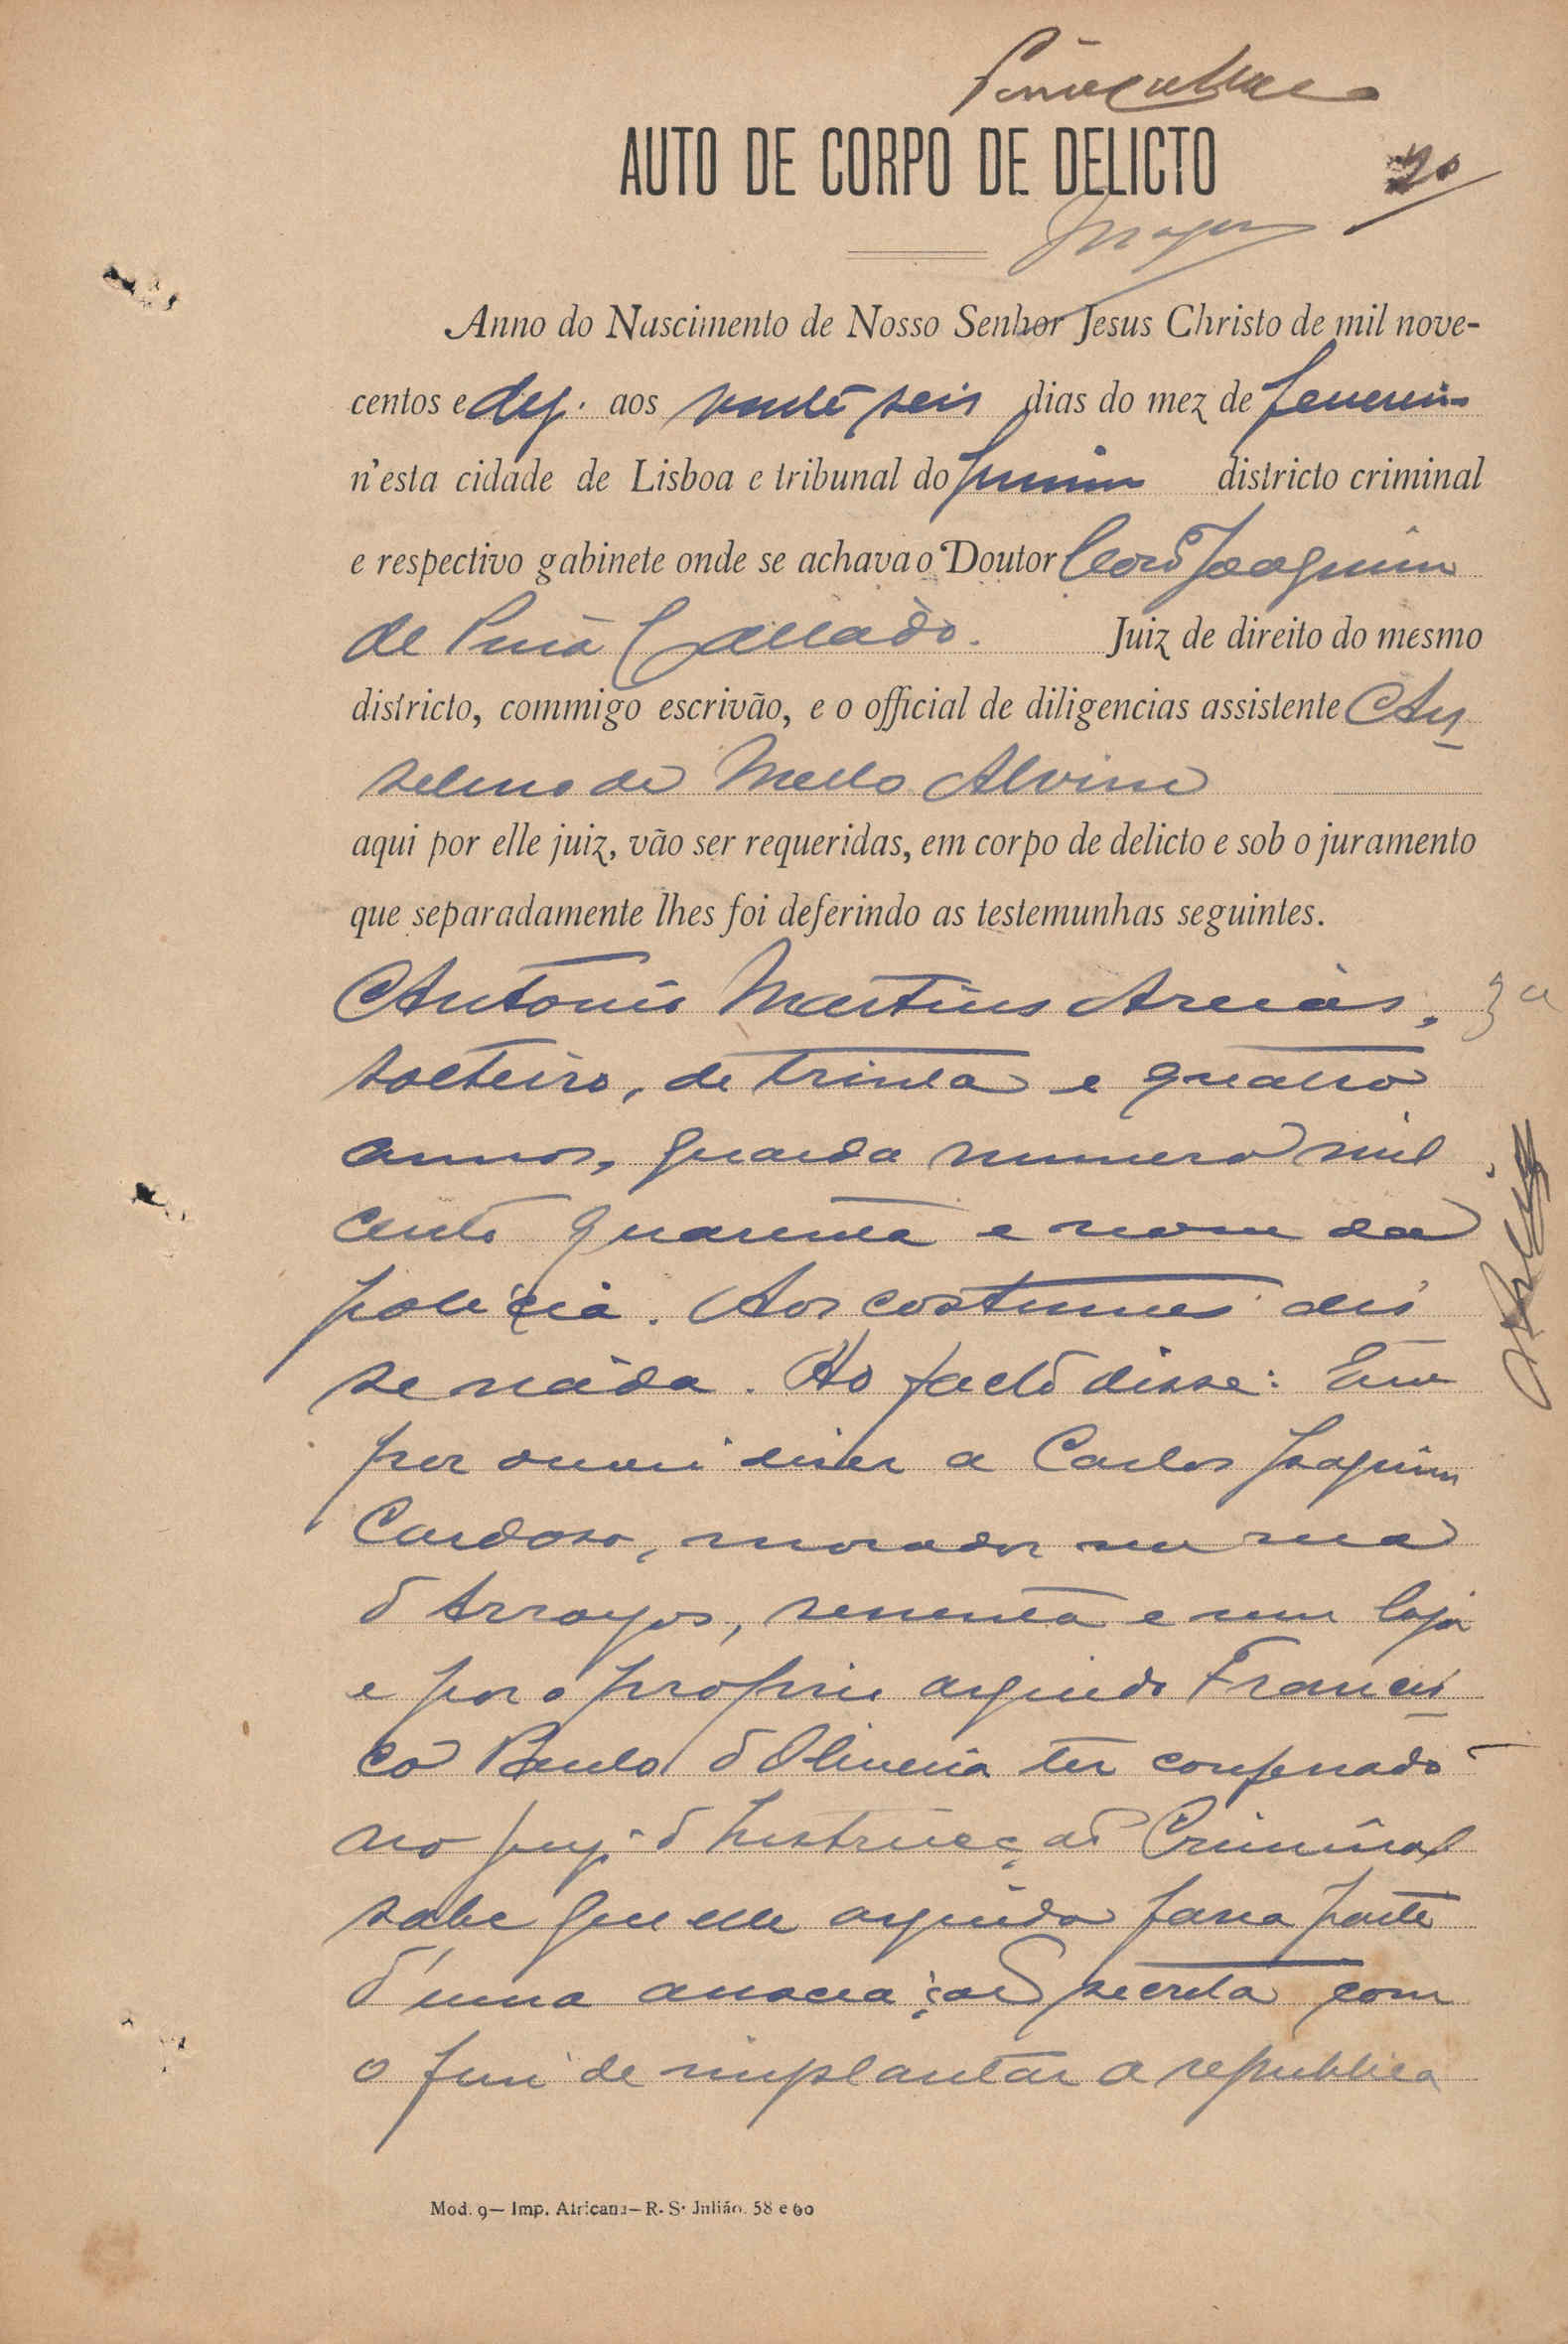 AUTO DE CORPO DE DELICTO
20
Anno do Nascimento de Nosso Senhor Jesus Christo de mil nove-
centos e dez. aos vinte seis dias do mez de fevereiro
n'esta cidade de Lisboa e tribunal do primeiro districto criminal
e respectivo gabinete onde se achava o Doutor Joaquim
de Pina Callado. Juiz de direito do mesmo
districto, commigo escrivão, e o official de diligencias assistente An
selmo de Mello Alvim
aqui por elle juiz, vão ser requeridas, em corpo de delicto e sob o juramento
que separadamente lhes foi deferindo as testemunhas seguintes.
Antonio Martins Areias, 3ª
solteiro, de trinta e quatro
annos, guarda numero mil
cento quarenta e nove da
policia. Aos costumes dis
se nada. Ao facto disse: Que
por ouvir dizer a Carlos Joaquim
Cardoso, morador na rua
d'Arroyos, sessenta e um loja
e por o proprio arguido Francis
co Paulo d'Oliveira ter confessado
no juizo d'Instrucção Criminal
sabe que elle arguido fazia parte
d'uma associação secreta com
o fim de implantar a republica
Mod. 9— Imp. Africana—R. S. Julião. 58 e 60